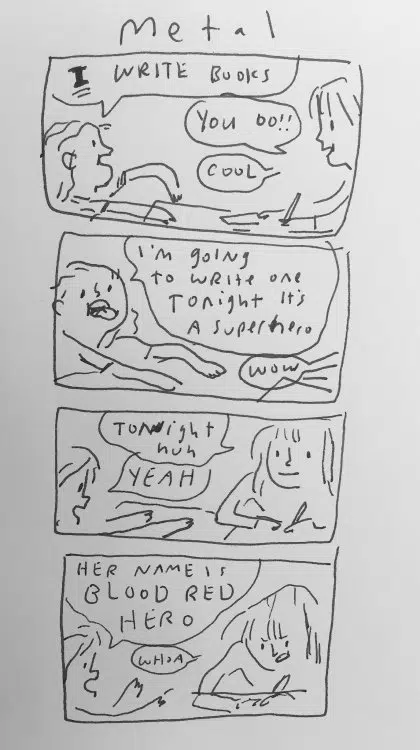 Metal
I WRITE BOOKS
YOU DO!!
COOL
I'm going
to write one
Tonight It's
A superhero
WOW
TONight
huh
YEAH
HER NAME IS
BLOOD RED
HERO
WHOA